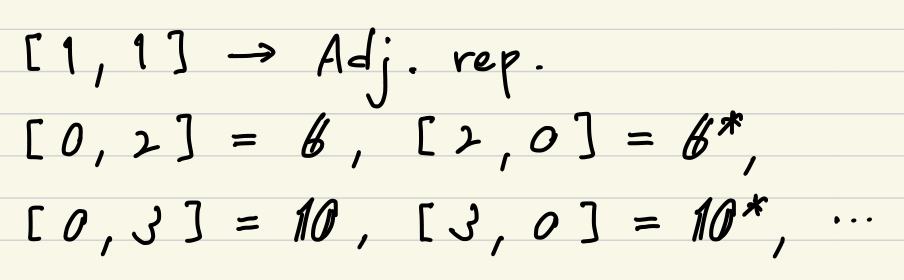 [1, 1] → Adj. rep.
[0, 2] = 6, [2, 0] = 6*,
[0, 3] = 10, [3, 0] = 10*, ...